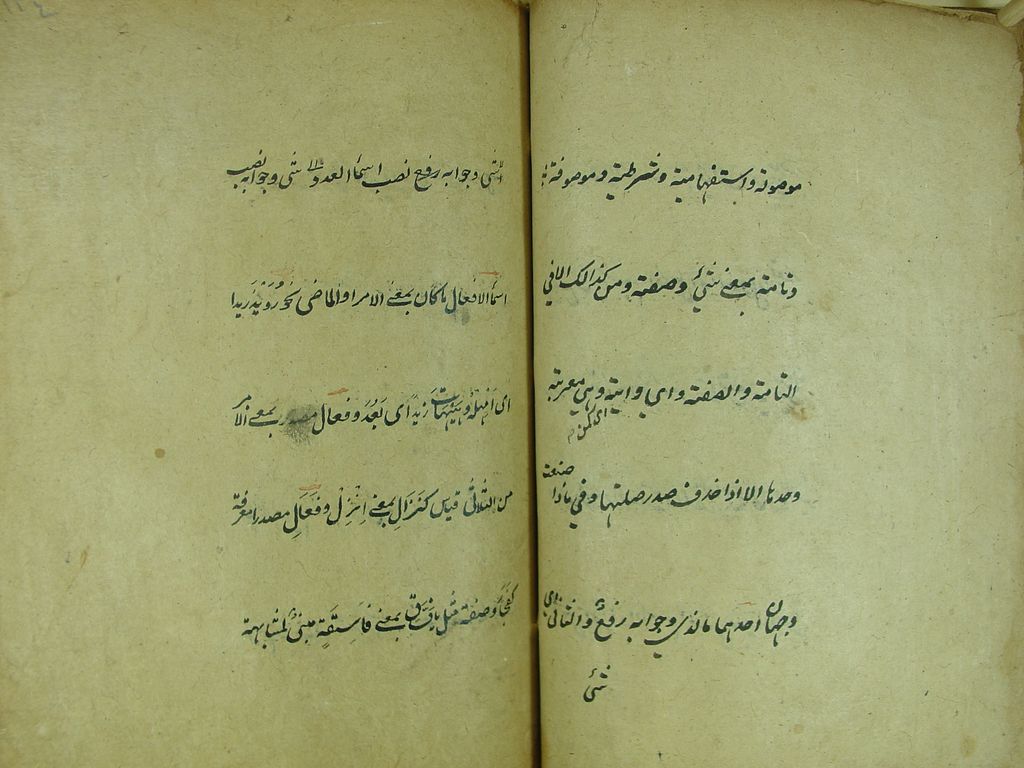 موصولة واستفهامية وشرطية وموصوفة
وتامة بمعنى شئ وصفة ومن كذالك الا في
التامة والصفة واي واية وهي معربة
اى كمن
وحدها الا اذا حذف صدر صلتها وفي ماذا صنعت
وجهان احدهما ما الذي وجوابه رفع والثاني اى
شئ
شئ وجوابه رفع نصب اسماا العدد شئ وجوابه نصب
اسماالافعال ماكان بمعنى الامر او الماضى نحو رُوَيْدَ زيدا
اى اَمْهِلْهُ وهَيْهَاتَ زيدٌ اى بَعُدَ وفعال بمعنى الامر
من الثُلاثى قياس كنَزَالِ بمعنى اِنْزِلْ وفَعَالِ مصدرا معرفة
كفَجَارِ وصفة مثل يافَسَاقِ بمعنى فَاسِقَةٍ مبنىٌ لمشابهة